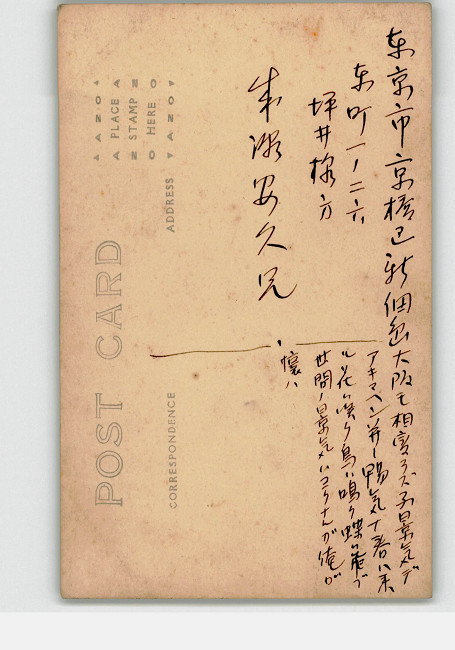 東京市京橋区新佃島
東町一ノ二六
坪井様方
安久兄
大阪モ相変ラズ不景気デ
アキマヘン 陽気ナ春ハ来
ル 花ハ咲ク鳥ハ鳴ク蝶ハ舞フ
世間ノ景気ハ 俺ガ
懐ハ
POST CARD
CORRESPONDENCE
ADDRESS
AZO
PLACE
STAMP
HERE
AZO